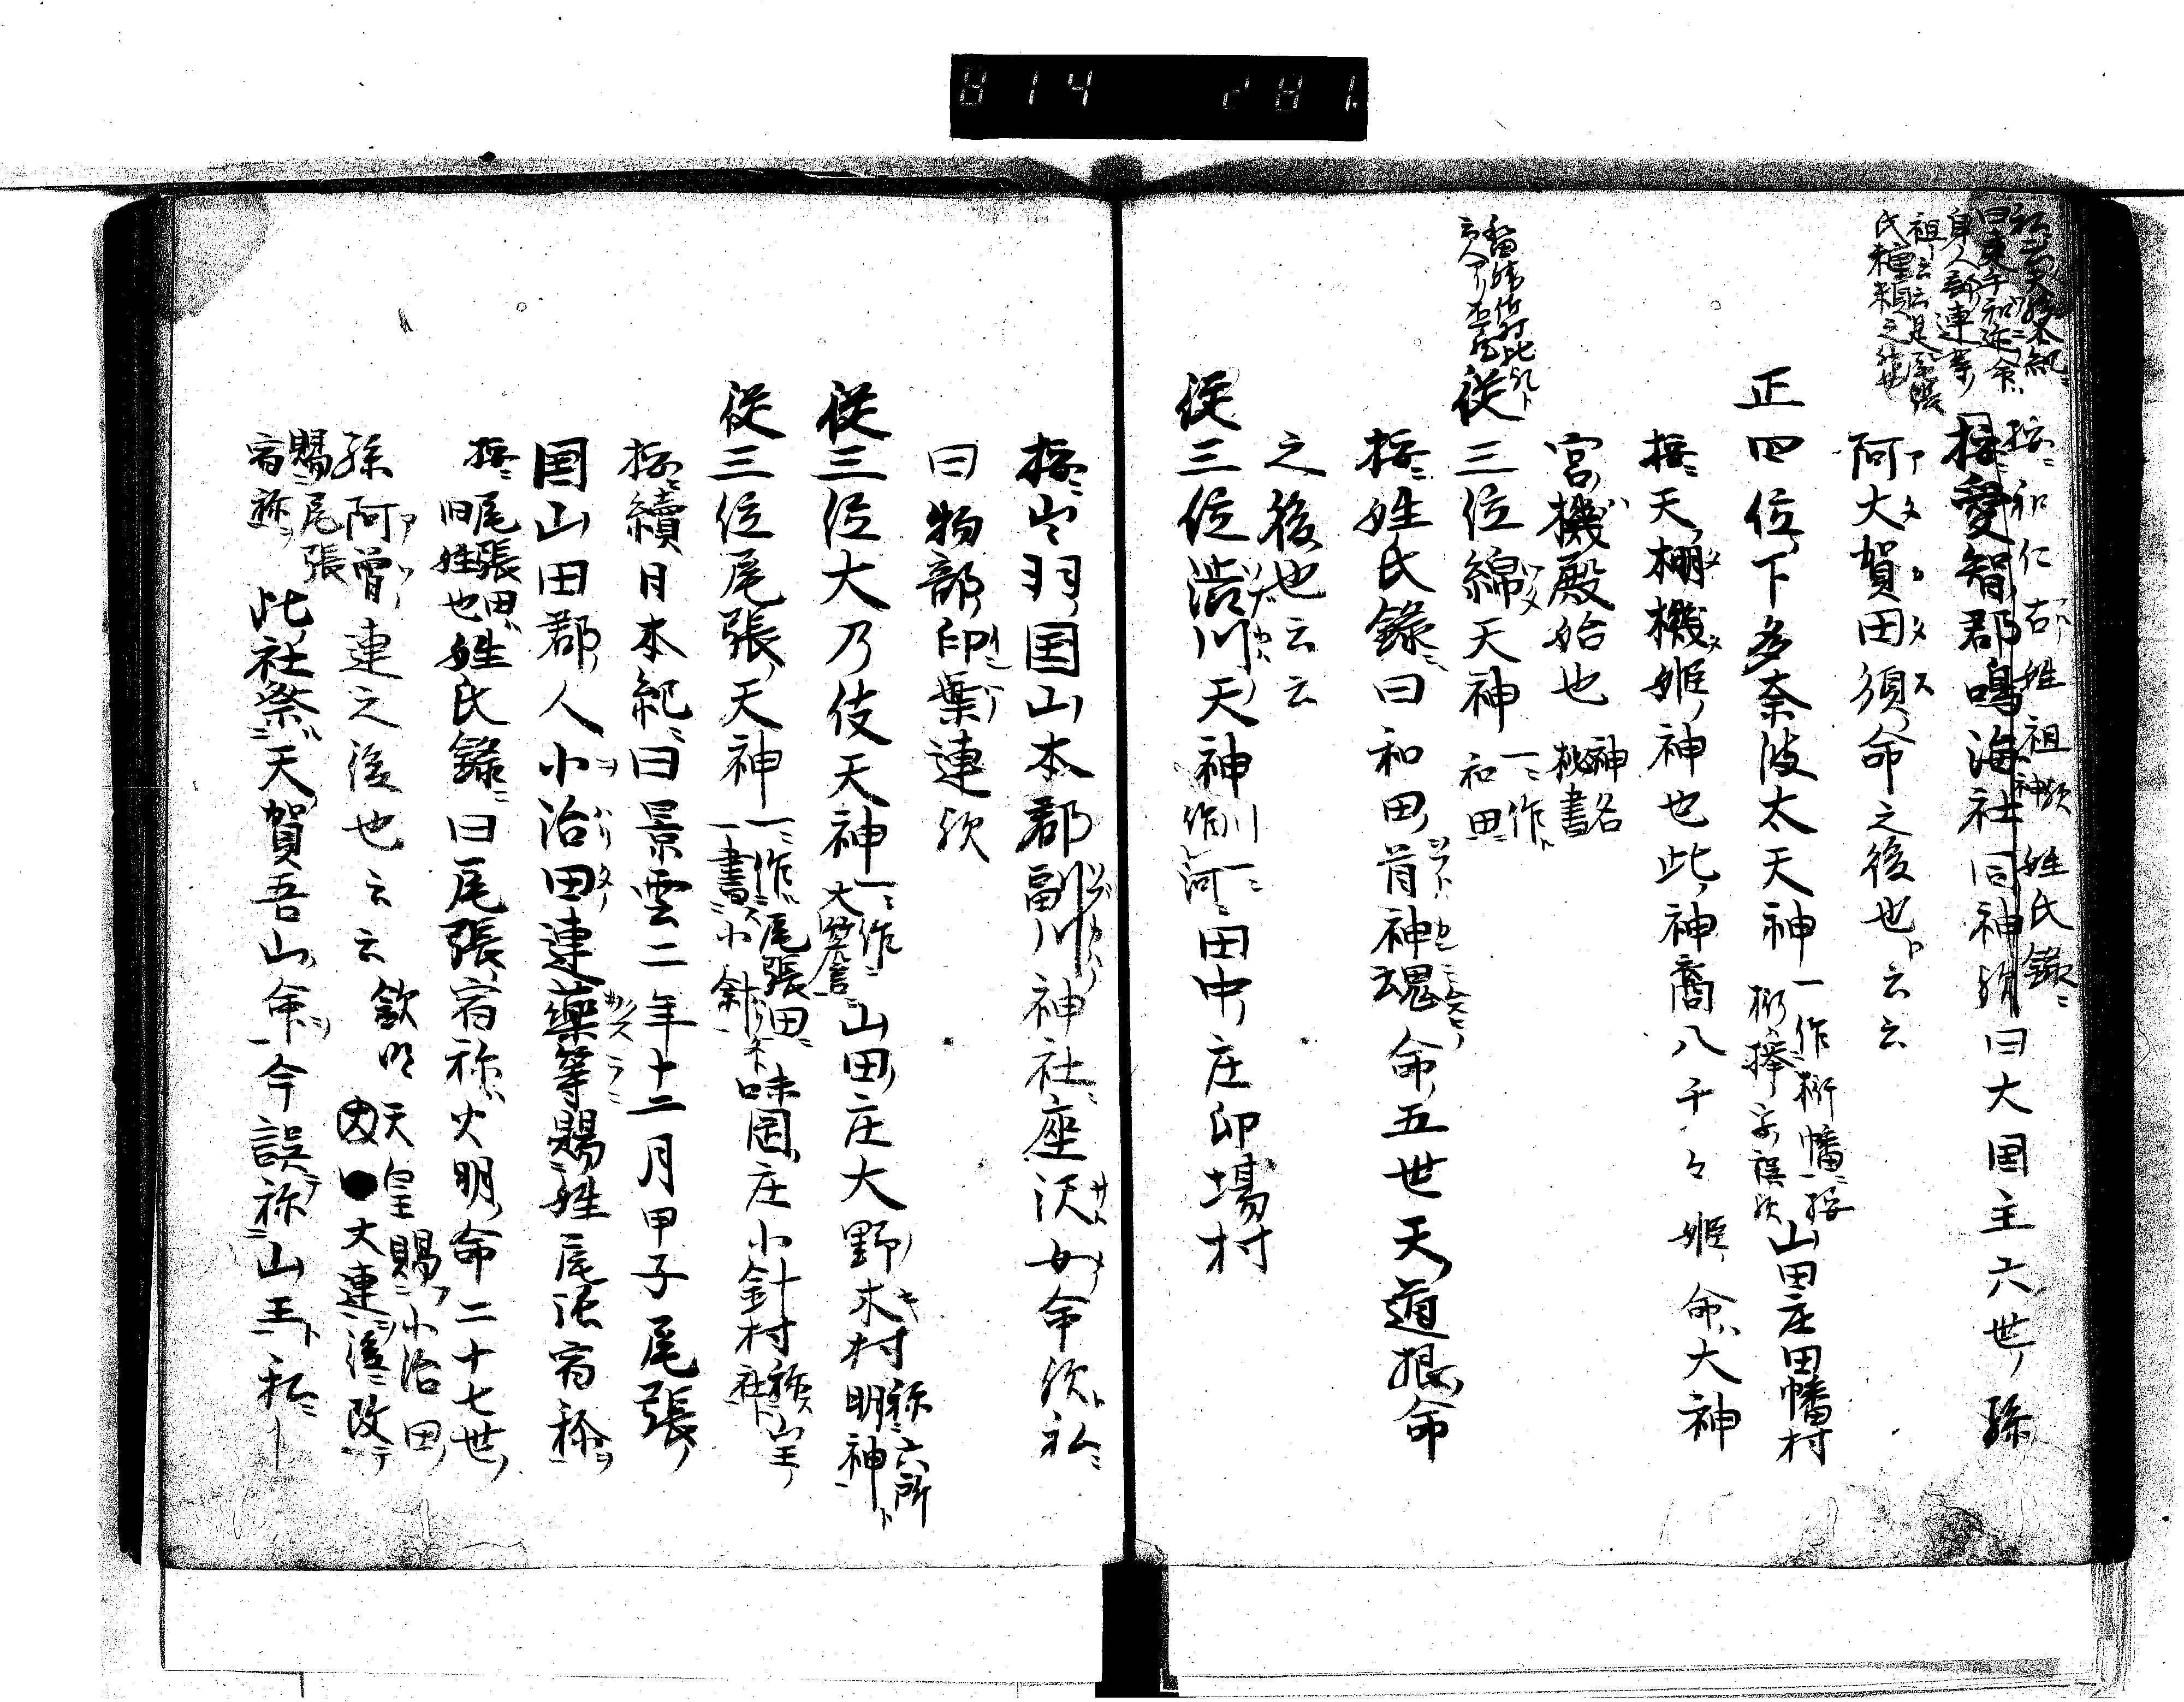 814 281.
按和仁古姓祖神歟姓氏録
按愛智郡鳴海社同神歟曰大国主六世孫
阿大賀田須命之後也云云
正四位下多奈波太天神
一作桁幡按
山田庄田幡村
按天棚機姫神也此神裔八千々姫命大神
宮機殿始也
神名
秘書
従三位綿天神
一作
和田
按姓氏録曰和田首神魂命五世天道根命
之後也云云
従三位澁川天神
川一
作河
田中庄印場村
按出羽国山本郡副川神社座沢女命歟私
曰物部印葉連歟
従三位大乃伎天神
一作
山田庄大野木村
称六所
明神
従三位尾張天神
一作尾張田
一書小針
味岡庄小針村
称山王
社
按續日本紀曰景雲二年十二月甲子尾張
国山田郡人小治田連藥等賜姓尾張宿祢
按
尾張田
旧姓也
姓氏録曰尾張宿祢火明命二十七世
孫阿曽連之後也云云
欽明天皇賜小治田
大連後改
賜尾張
宿祢
此社祭天賀吾山命今誤称山王私